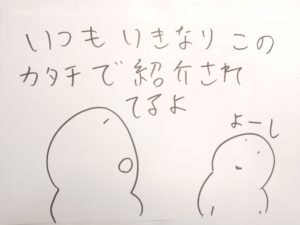 いつもいきなりこの
カタチで紹介され
てるよ
よーし